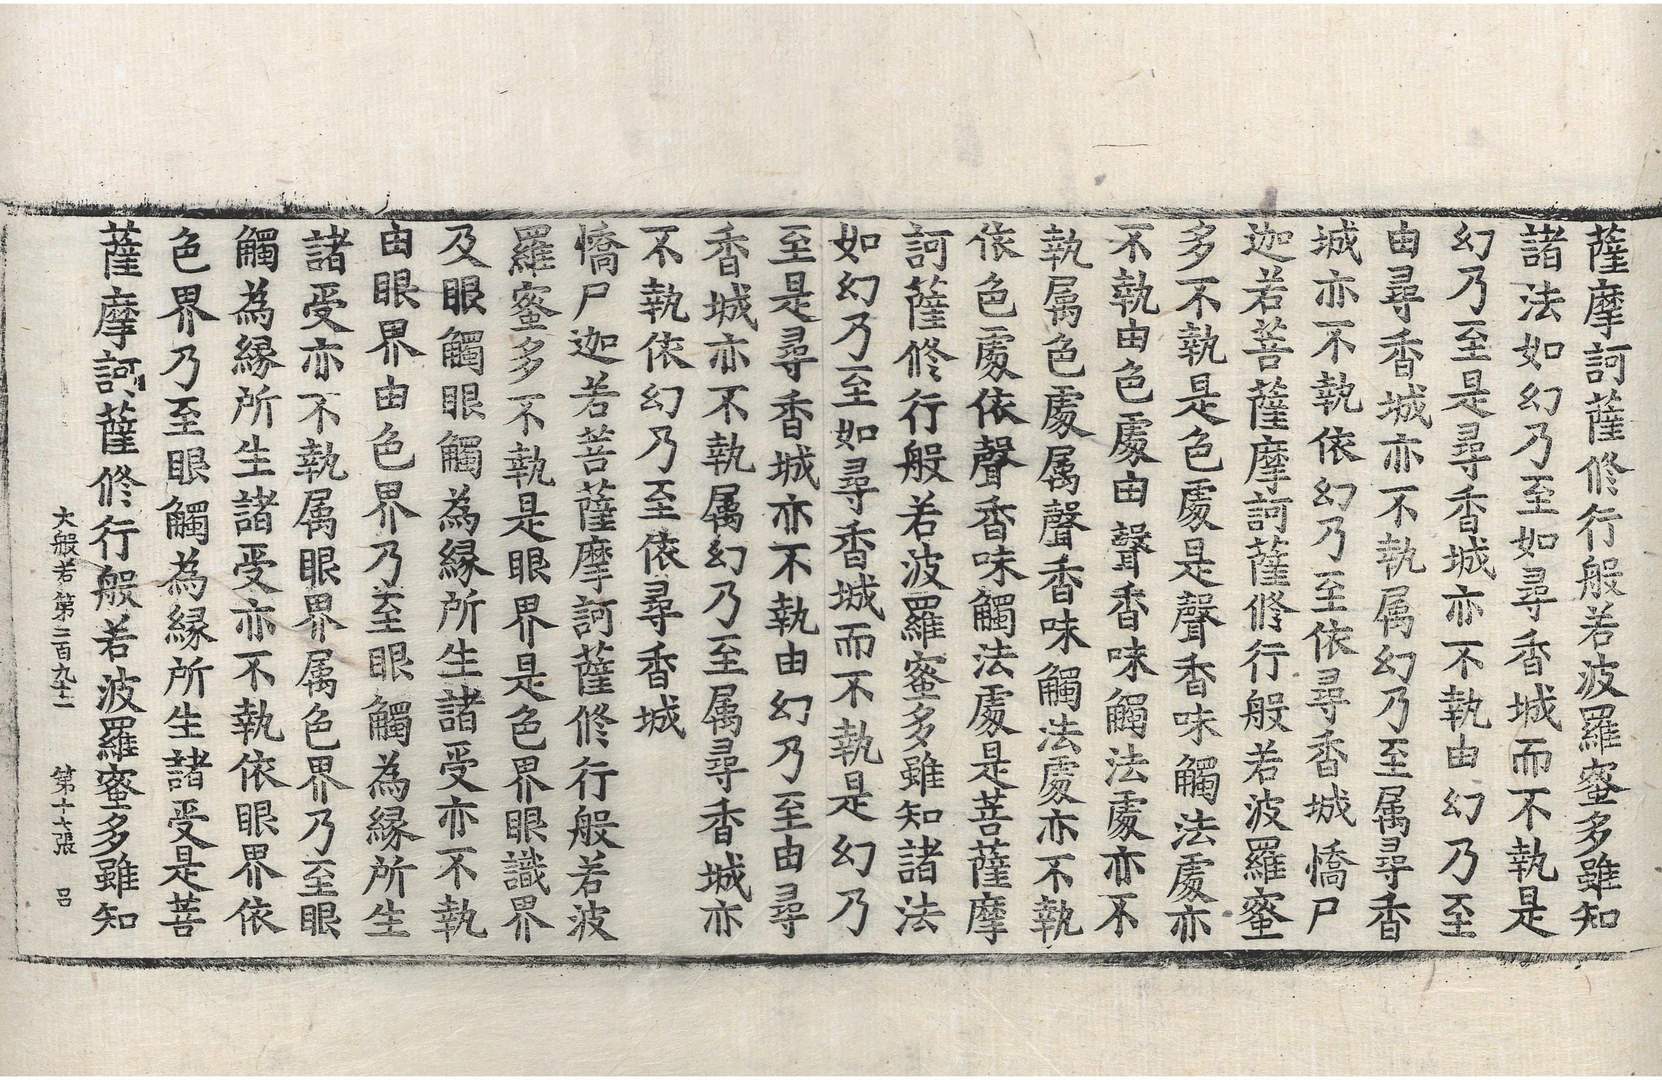 薩摩訶薩修行般若波羅蜜多雖知
諸法如幻乃至如尋香城而不執是
幻乃至是尋香城亦不執由幻乃至
由尋香城亦不執属幻乃至属尋香
城亦不執依幻乃至依尋香城憍尸
迦若菩薩摩訶薩修行般若波羅蜜
多不執是色處是聲香味觸法處亦
不執由色處由聲香味觸法處亦不
執属色處属聲香味觸法處亦不執
依色處依聲香味觸法處是菩薩摩
訶薩修行般若波羅蜜多雖知諸法
如幻乃至如尋香城而不執是幻乃
至是尋香城亦不執由幻乃至由尋
香城亦不執属幻乃至属尋香城亦
不執依幻乃至依尋香城
憍尸迦若菩薩摩訶薩修行般若波
羅蜜多不執是眼界是色界眼識界
及眼觸眼觸為縁所生諸受亦不執
由眼界由色界乃至眼觸為縁所生
諸受亦不執属眼界属色界乃至眼
觸為縁所生諸受亦不執依眼界依
色界乃至眼觸為縁所生諸受是菩
薩摩訶薩修行般若波羅蜜多雖知
大般若第二百九十二 第十七張 呂